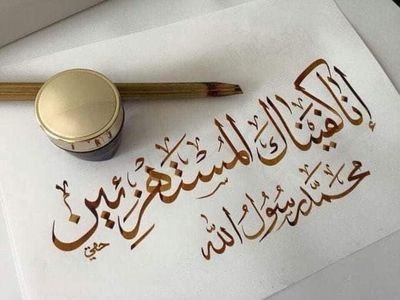 إنا كفيناك المستهزئين
محمَّد رسُولُ الله